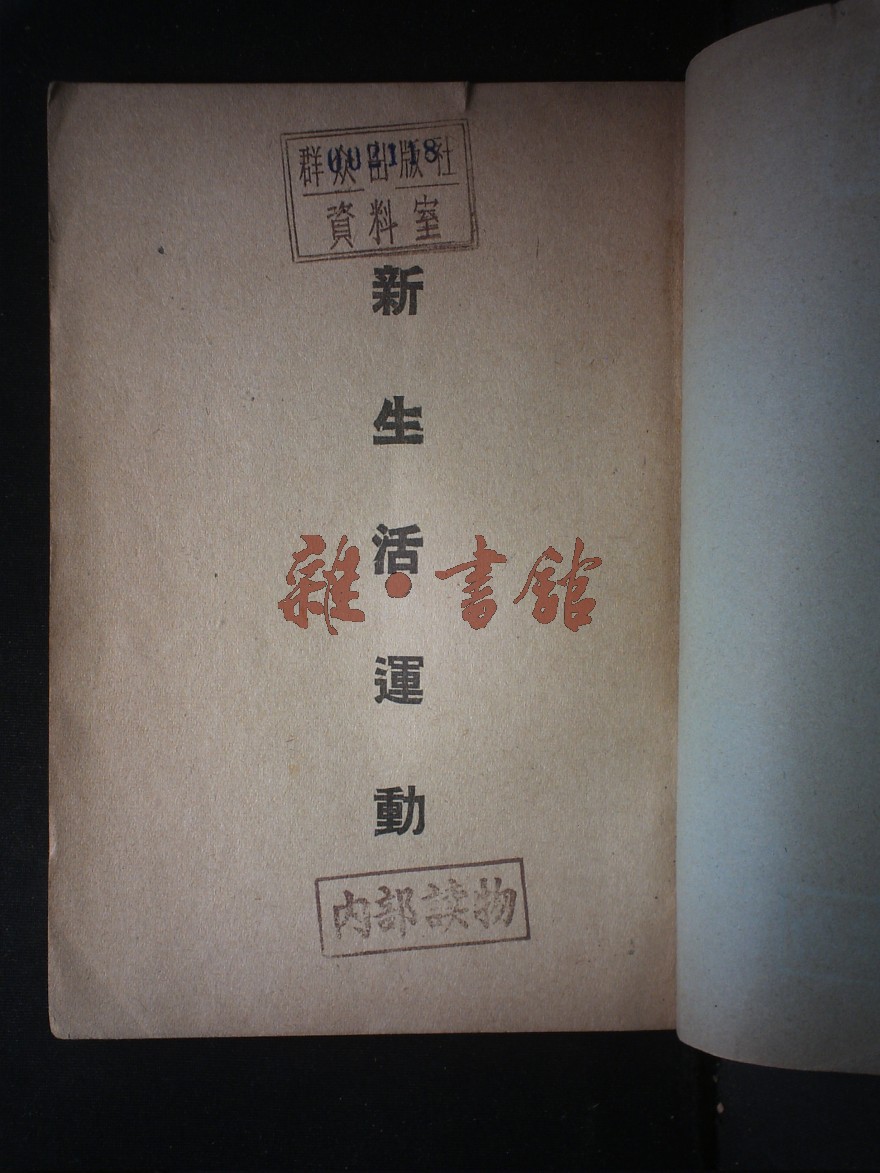 群众出版社
002118
資料室
新生活運動
雜·書館
内部读物